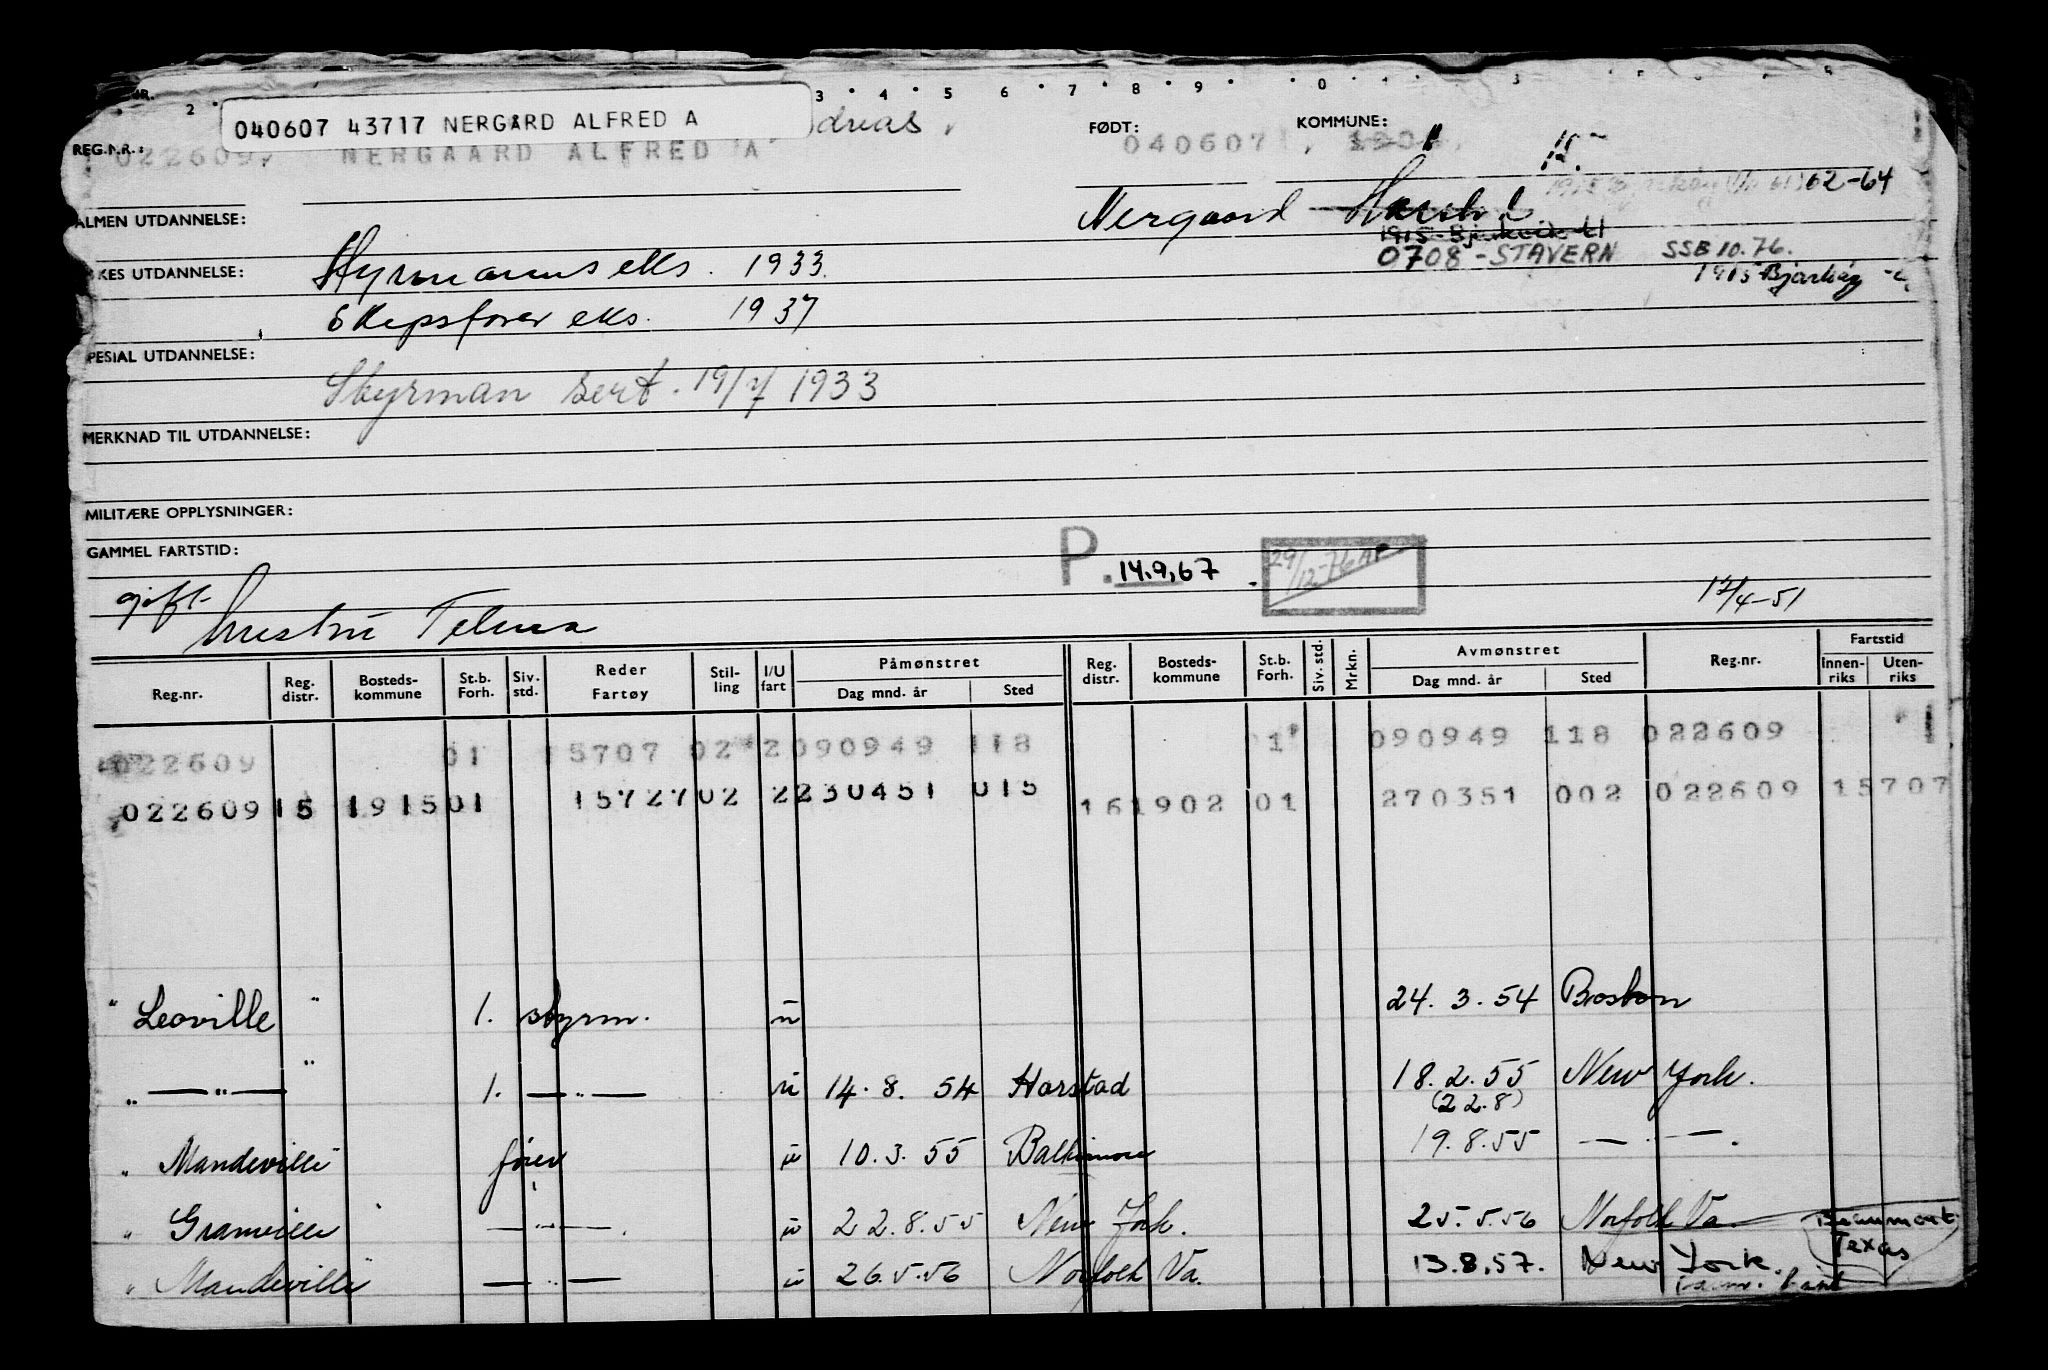 NR. 2 3 4 5 6 7 8 9 0 1 3
040607 43717 NERGÅRD ALFRED A
dreas
FØDT: KOMMUNE:
REG.N.R.: 022609 NERGAARD ALFRED A 040607
62-64
ALMEN UTDANNELSE: Nergaard
0708 - STAVERN SSB 10.76.
KES UTDANNELSE: Styrmannseks. 1933.
1915 Bjarkøy
Skipsfører eks. 1937
PESIAL UTDANNELSE:
Styrman sert. 19/7 1933
MERKNAD TIL UTDANNELSE:
MILITÆRE OPPLYSNINGER:
GAMMEL FARTSTID:
P. 14.9.67 29/12-76 AP
gift 17/4-51
hustru
Reg.nr. Reg. distr. Bosteds-kommune St.b. Forh. Siv. std. Reder Fartøy Stil-ling I/U fart Påmønstret Dag mnd. år Sted Reg. distr. Bosteds-kommune St.b. Forh. Siv. std. Mrkn. Avmønstret Dag mnd. år Sted Reg.nr. Fartstid Innen-riks Uten-riks
022609 01 15707 02 2 090949 118 01 090949 118 022609 1
022609 15 1915 01 15727 02 2 230451 015 16 1902 01 270351 002 022609 15707
" Leoville " 1. styrm. u 24. 3. 54 Boston
" —"— " 1. —"— u 14. 8. 54 Harstad 18. 2. 55 New York.
(22.8)
" Mandeville fører u 10. 3. 55 Baltimore 19. 8. 55 —"—.
" Granville —"— u 22. 8. 55 New York. 25. 5. 56 Norfolk Va.
Beaumont Texas
" Mandeville —"— u 26. 5. 56 Norfolk Va. 13. 8. 57. New York.